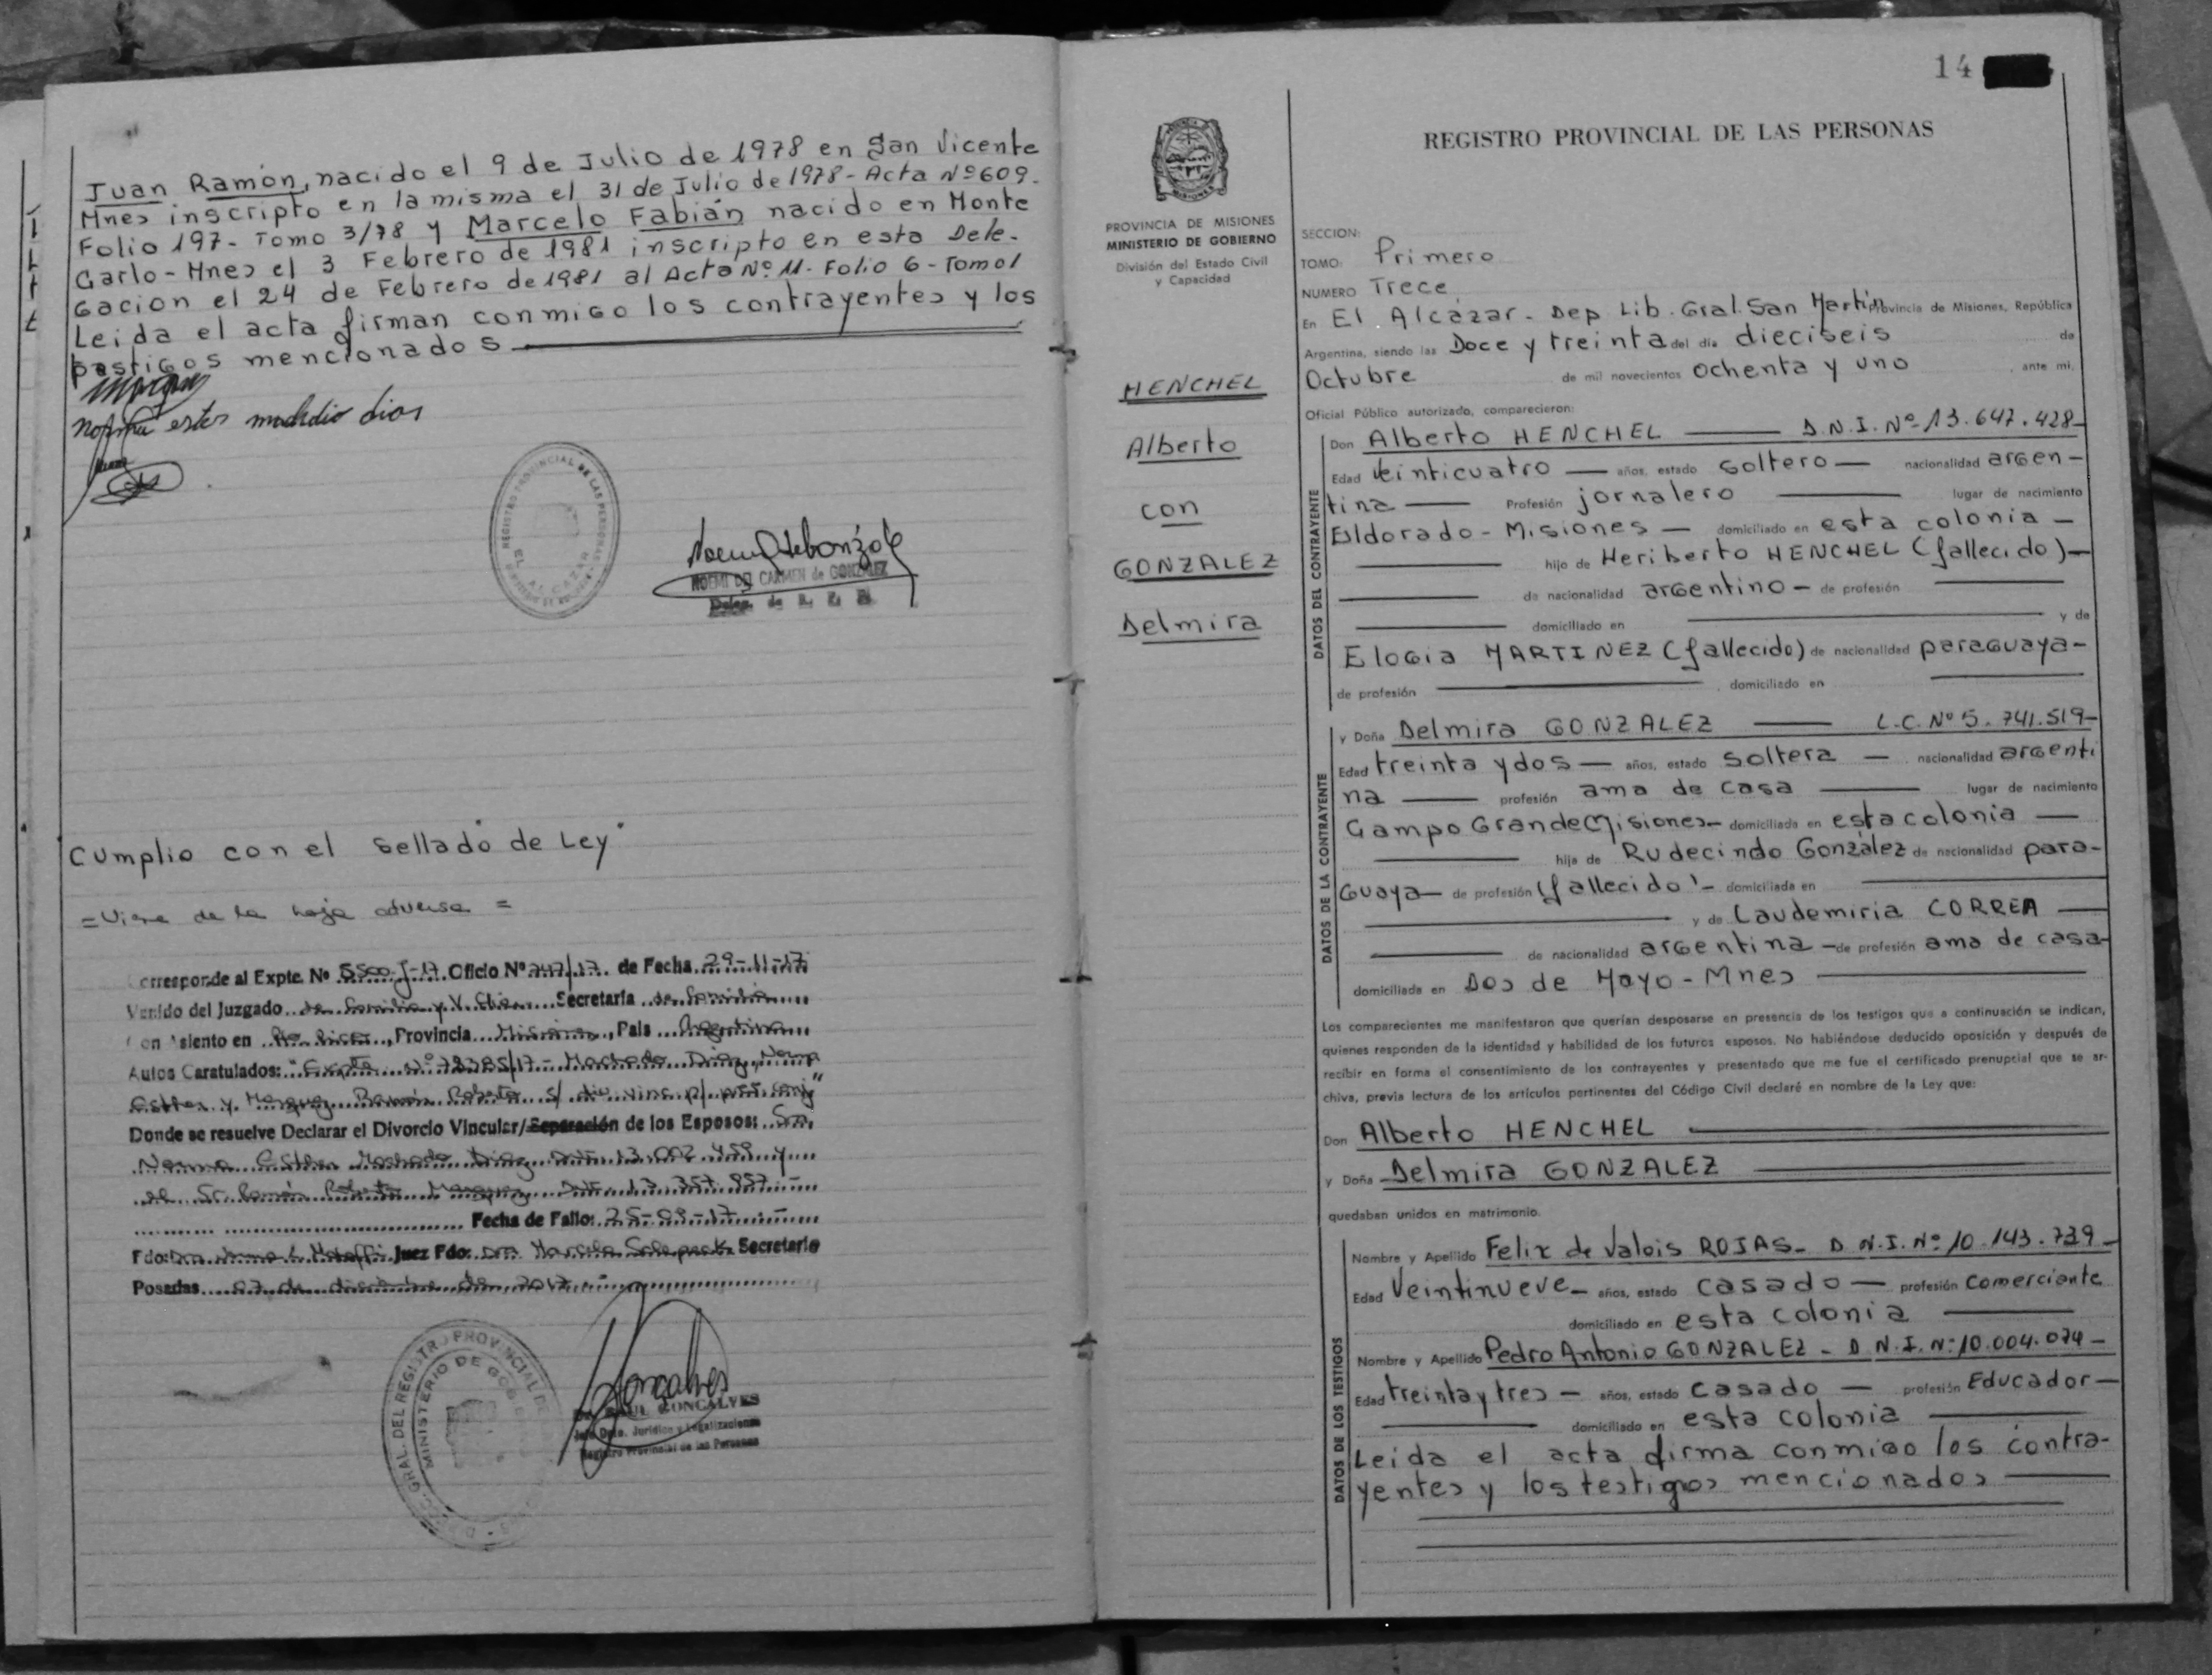 Juan Ramón, nacido el 9 de Julio de 1978 en San Vicente
Mnes inscripto en la misma el 31 de Julio de 1978 - Acta Nº 609.
Folio 197 - Tomo 3/78 y Marcelo Fabián nacido en Monte
Carlo - Mnes el 3 Febrero de 1981 inscripto en esta Dele-
gacion el 24 de Febrero de 1981 al Acta Nº 11 - Folio 6 - Tomo 1
Leida el acta firman conmigo los contrayentes y los
testigos mencionados
REGISTRO PROVINCIAL DE LAS PERSONAS
EL ALCAZAR
NOEMI DEL CARMEN de GONZALEZ
Cumplio con el "Sellado de Ley"
= Viene de la hoja adversa =
Corresponde al Expte. Nº 5500-J-17 Oficio Nº 747/17. de Fecha 29-11-17
Venido del Juzgado de Familia y V. Secretaría de Familia
Con Asiento en Pto Rico, Provincia Misiones, País Argentina
Autos Caratulados: "Expte Nº 78385/17 - Machado Diaz, Norma
Esther y Marquez Ramón Roberto s/ div. vinc. p/ pres. conj"
Donde se resuelve Declarar el Divorcio Vincular/Separación de los Esposos: Sra.
Norma Esther Machado Diaz DNI 13.002.459 y
el Sr. Ramón Roberto Marquez DNI 13.357.957.-
Fecha de Fallo: 25-09-17.-
Fdo: Dra Juez Fdo: Dra Marcela Secretario
Posadas 07 de diciembre de 2017
GRAL. DEL REGISTRO PROVINCIAL DE
MINISTERIO DE GOBIERNO
Goncalves
RAUL GONCALVES
Jefe Dpto. Jurídico y Legalizaciones
Registro Provincial de las Personas
14
PROVINCIA DE MISIONES
MINISTERIO DE GOBIERNO
División del Estado Civil
y Capacidad
HENCHEL
Alberto
con
GONZALEZ
Delmira
REGISTRO PROVINCIAL DE LAS PERSONAS
SECCION:
TOMO: Primero
NUMERO Trece
En El Alcázar - Dep. Lib. Gral. San Martín Provincia de Misiones, República
Argentina, siendo las Doce y treinta del día dieciseis de
Octubre de mil novecientos ochenta y uno, ante mi,
Oficial Público autorizado, comparecieron:
DATOS DEL CONTRAYENTE
Don Alberto HENCHEL D.N.I. Nº 13.647.428
Edad Veinticuatro años, estado soltero nacionalidad argen-
tina Profesión jornalero lugar de nacimiento
Eldorado - Misiones domiciliado en esta colonia
hijo de Heriberto HENCHEL (fallecido)
de nacionalidad argentino de profesión
domiciliado en y de
Elogia MARTINEZ (fallecido) de nacionalidad paraguaya
de profesión domiciliado en
DATOS DE LA CONTRAYENTE
y Doña Delmira GONZALEZ L.C. Nº 5.741.519
Edad treinta y dos años, estado soltera nacionalidad argenti
na profesión ama de casa lugar de nacimiento
Campo Grande Misiones domiciliada en esta colonia
hija de Rudecindo González de nacionalidad para-
guaya de profesión (fallecido) domiciliada en
y de Laudemiria CORREA
de nacionalidad argentina de profesión ama de casa
domiciliada en Dos de Mayo - Mnes
Los comparecientes me manifestaron que querían desposarse en presencia de los testigos que a continuación se indican,
quienes responden de la identidad y habilidad de los futuros esposos. No habiéndose deducido oposición y después de
recibir en forma el consentimiento de los contrayentes y presentado que me fue el certificado prenupcial que se ar-
chiva, previa lectura de los artículos pertinentes del Código Civil declaré en nombre de la Ley que:
Don Alberto HENCHEL
y Doña Delmira GONZALEZ
quedaban unidos en matrimonio.
DATOS DE LOS TESTIGOS
Nombre y Apellido Felix de Valois ROJAS - D.N.I. Nº 10.143.739
Edad Veintinueve años, estado casado profesión Comerciante
domiciliado en esta colonia
Nombre y Apellido Pedro Antonio GONZALEZ - D.N.I. Nº 10.004.074
Edad treinta y tres años, estado casado profesión Educador
domiciliado en esta colonia
Leida el acta firma conmigo los contra-
yentes y los testigos mencionados